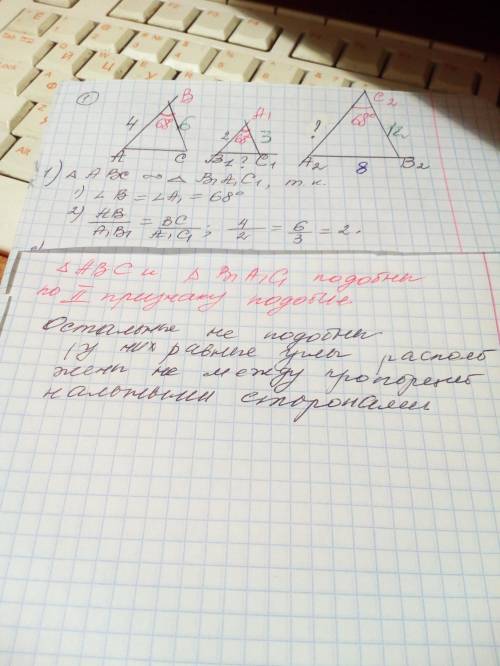 ①
B
68°
4
6
A
C
A₁
68°
2
3
B₁
?
C₁
C₂
68°
?
12
A₂
8
B₂
1) △ ABC ∞ △ B₁A₁C₁, т.к.
1) ∠B = ∠A₁ = 68°
2) AB/A₁B₁ = BC/A₁C₁; 4/2 = 6/3 = 2.
△ ABC и △ B₁A₁C₁ подобны
по II признаку подобия
Остальные не подобны
(у них равные углы располо
жены не между пропорцио
нальными сторонами